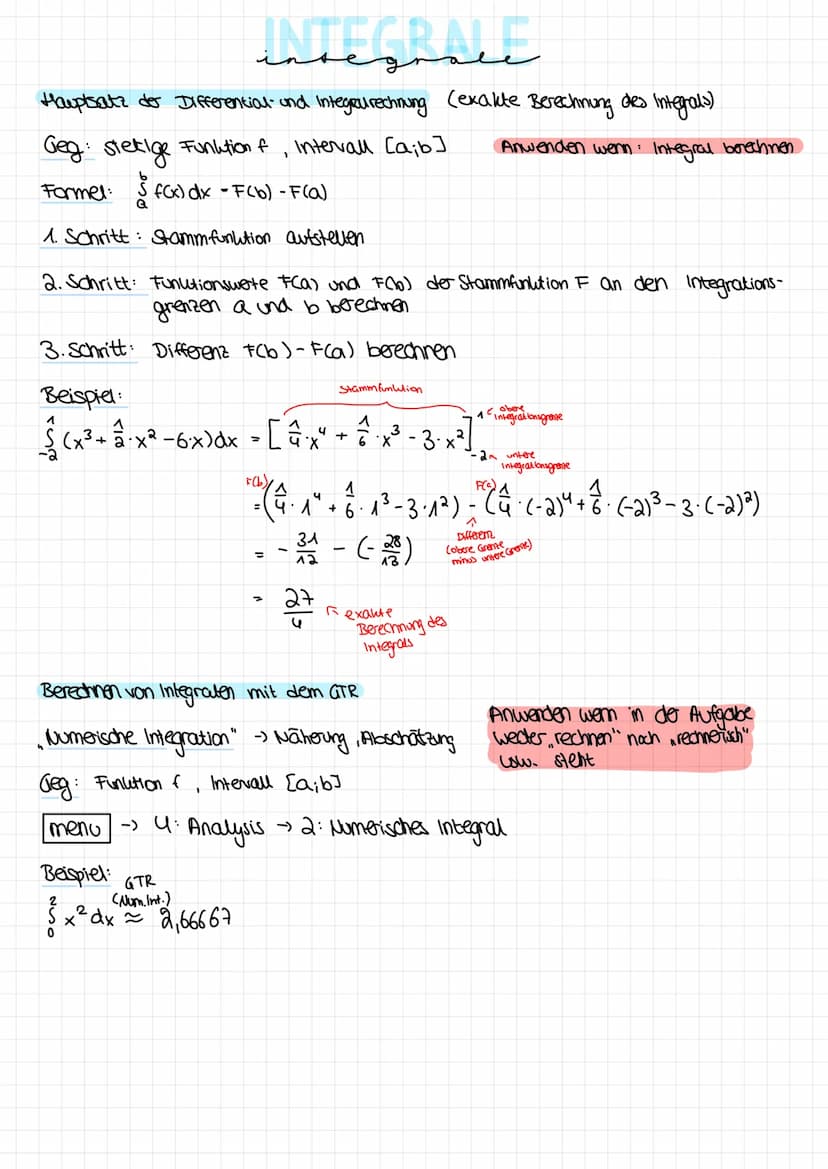 INTEGRALE
integrale
Hauptsatz der Differential- und Integralrechnung (exakte Berechnung des Integrals)
Geg: stetige Funktion f, Intervall [a;b] Anwenden wenn: Integral berechnen
Formel: ∫ₐᵇ f(x) dx = F(b) - F(a)
1. Schritt: Stammfunktion aufstellen
2. Schritt: Funktionswerte F(a) und F(b) der Stammfunktion F an den Integrations-
grenzen a und b berechnen
3. Schritt: Differenz F(b) - F(a) berechnen
Beispiel:
Stammfunktion
∫₋₂¹ (x³ + 1/2 · x² - 6·x) dx = [1/4 · x⁴ + 1/6 · x³ - 3 · x²]₋₂¹
obere Integrationsgrenze
untere Integrationsgrenze
F(b) F(a)
= (1/4 · 1⁴ + 1/6 · 1³ - 3 · 1²) - (1/4 · (-2)⁴ + 1/6 · (-2)³ - 3 · (-2)²)
Differenz
(obere Grenze
minus untere Grenze)
= - 31/12 - (- 28/13)
= 27/4
exakte
Berechnung des
Integrals
Berechnen von Integralen mit dem GTR
„Numerische Integration" → Näherung, Abschätzung
Anwenden wenn in der Aufgabe
weder „rechnen" noch „rechnerisch"
usw. steht
Geg: Funktion f, Intervall [a;b]
menu → 4: Analysis → 2: Numerisches Integral
Beispiel:
GTR
(Num.Int.)
∫₀² x² dx ≈ 2,66667